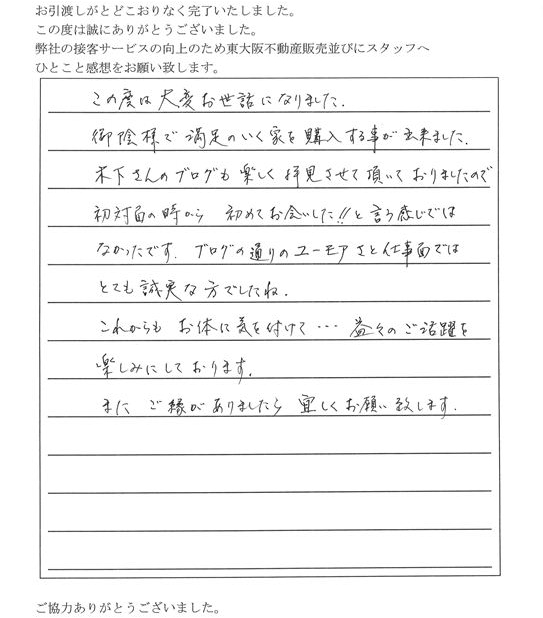 お引渡しがとどこおりなく完了いたしました。
この度は誠にありがとうございました。
弊社の接客サービスの向上のため東大阪不動産販売並びにスタッフへ
ひとこと感想をお願い致します。
この度は大変お世話になりました.
御陰様で満足のいく家を購入する事が出来ました.
木下さんのブログも楽しく拝見させて頂いておりましたので
初対面の時から 初めてお会いした!!と言う感じでは
なかったです. ブログの通りのユーモアさと仕事面では
とても誠実な方でしたね.
これからも お体に気を付けて… 益々のご活躍を
楽しみにしております.
また ご縁がありましたら 宜しくお願い致します.
ご協力ありがとうございました。